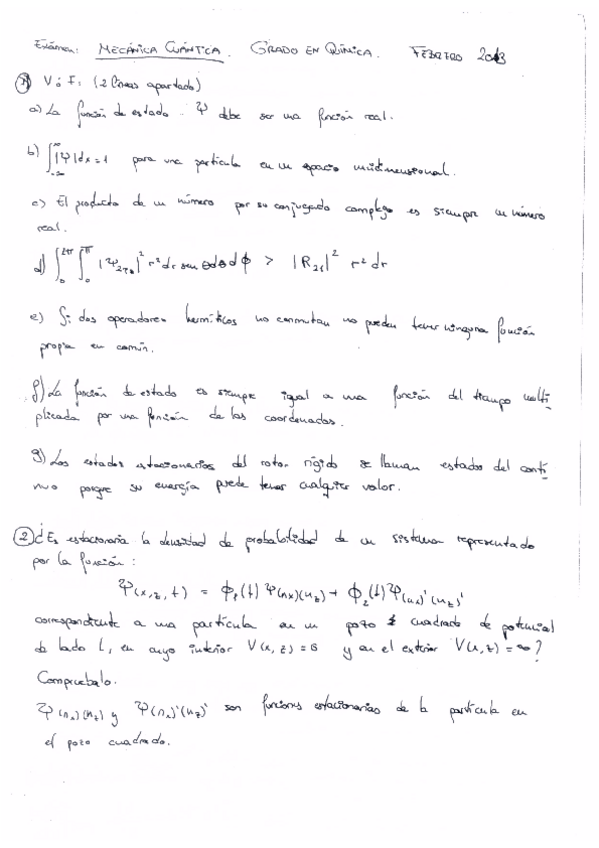 Exámen: MECÁNICA CUÁNTICA. GRADO EN QUÍMICA. FEBRERO 2013
1) V ó F: (2 líneas apartado)
a) La función de estado Ψ debe ser una función real.
b) ∫_{-∞}^{∞} |Ψ|dx = 1 para una partícula en un espacio unidimensional.
c) El producto de un número por su conjugado complejo es siempre un número
real.
d) ∫_0^{2π} ∫_0^{π} |Ψ_{2p_0}|² r² dr sen θ dθ d ϕ > |R_{21}|² r² dr
e) Si dos operadores hermíticos no conmutan no pueden tener ninguna función
propia en común.
f) La función de estado es siempre igual a una función del tiempo multi
plicada por una función de las coordenadas.
g) Los estados estacionarios del rotor rígido se llaman estados del conti
nuo porque su energía puede tener cualquier valor.
2) ¿Es estacionaria la densidad de probabilidad de un sistema representado
por la función:
Ψ(x,z,t) = ϕ_1(t) Ψ(n_x)(n_z) + ϕ_2(t) Ψ(n_x)'(n_z)'
correspondiente a una partícula en un pozo cuadrado de potencial
de lado L, en cuyo interior V(x,z)=0 y en el exterior V(x,z)=∞?
Compruebalo.
Ψ(n_x)(n_z) y Ψ(n_x)'(n_z)' son funciones estacionarias de la partícula en
el pozo cuadrado.